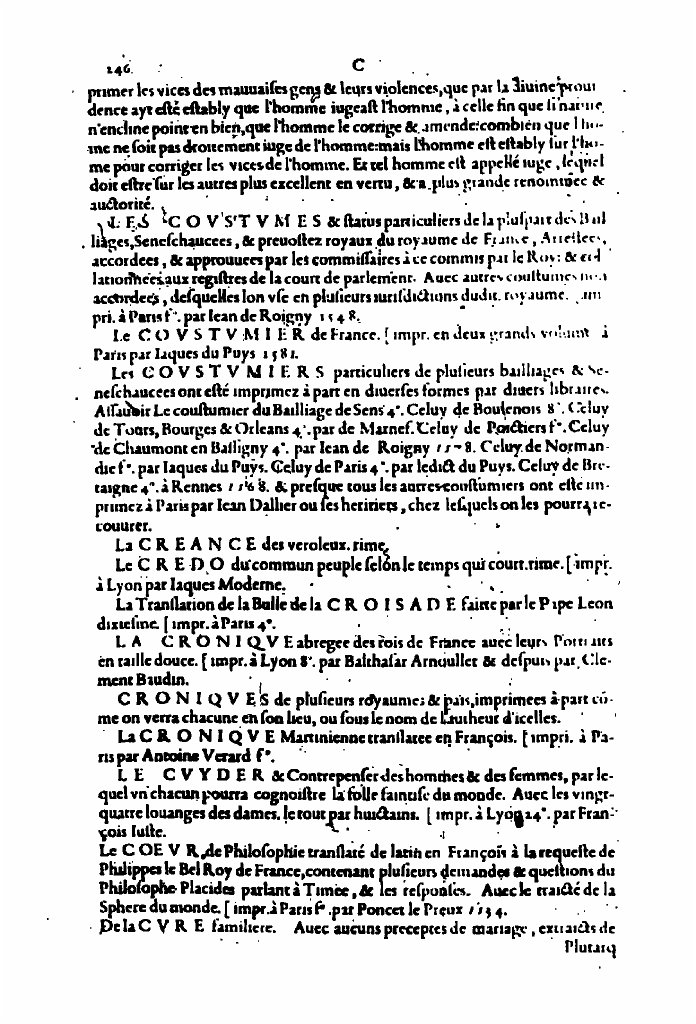 246. C
primer les vices des mauuaiſes gens & leurs violences, que par la diuine proui
dence ayt eſté eſtably que l'homme iugeaſt l'homme, à celle fin que ſi nature
n'encline point en bien, que l'homme le corrige & amende: combien que l'hom-
me ne ſoit pas droitement iuge de l'homme: mais l'homme eſt eſtably ſur l'ho-
me pour corriger les vices de l'homme. Et tel homme eſt appellé iuge, lequel
doit eſtre ſur les autres plus excellent en vertu, & a plus grande renommee &
auctorité.
LES COVSTVMES & ſtatus particuliers de la pluſpart des Bail
liages, Seneſchaucees, & preuoſtez royaux du royaume de France, Arreſtees,
accordees, & approuuees par les commiſſaires à ce commis par le Roy: & col
lationnees aux regiſtres de la court de parlement. Auec autres couſtumes non
accordees, deſquelles lon vſe en pluſieurs iuriſdictions dudit royaume. im
pri. à Paris f°. par Iean de Roigny 1548.
Le COVSTVMIER de France. [impr. en deux grands volum à
Paris par Iaques du Puys 1581.
Les COVSTVMIERS particuliers de pluſieurs bailliages & Se-
neſchaucees ont eſté imprimez à part en diuerſes formes par diuers libraires.
Aſſauoir Le couſtumier du Bailliage de Sens 4°. Celuy de Boulenois 8°. Celuy
de Tours, Bourges & Orleans 4°. par de Marnef. Celuy de Poictiers f°. Celuy
de Chaumont en Baſſigny 4°. par Iean de Roigny Celuy de Norman-
die f°. par Iaques du Puys. Celuy de Paris 4°. par ledict du Puys. Celuy de Bre-
taigne 4°. à Rennes & preſque tous les autres couſtumiers ont eſté im-
primez à Paris par Iean Dallier ou ſes heritiers, chez leſquels on les pourra re-
couurer.
La CREANCE des veroleux. rime.
Le CREDO du commun peuple ſelon le temps qui court. rime. [impr.
à Lyon par Iaques Moderne.
La Tranſlation de la Bulle de la CROISADE faicte par le Pape Leon
dixieſme. [impr. à Paris 4°.
LA CRONIQVE abregee des rois de France auec leurs Portraits
en taille douce. [impr. à Lyon 8°. par Balthaſar Arnoullet & deſpuis par Cle-
ment Baudin.
CRONIQVES de pluſieurs royaumes & païs, imprimees à part cō-
me on verra chacune en ſon lieu, ou ſous le nom de l'autheur d'icelles.
La CRONIQVE Martinienne tranſlatee en François. [impri. à Pa-
ris par Antoine Verard f°.
LE CVYDER & Contrepenſer des hommes & des femmes, par le-
quel vn chacun pourra cognoiſtre la folle fantaſie du monde. Auec les vingt-
quatre louanges des dames. le tout par huictains. [impr. à Lyon 24°. par Fran-
çois Iuſte.
Le COEVR de Philoſophie tranſlaté de latin en François à la requeſte de
Philippes le Bel Roy de France, contenant pluſieurs demandes & queſtions du
Philoſophe Placides parlant à Timee, & les reſponſes. Auec le traicté de la
Sphere du monde. [impr. à Paris f°. par Poncet le Preux 1534.
De la CVRE familiere. Auec aucuns preceptes de mariage, extraicts de
Plutarq